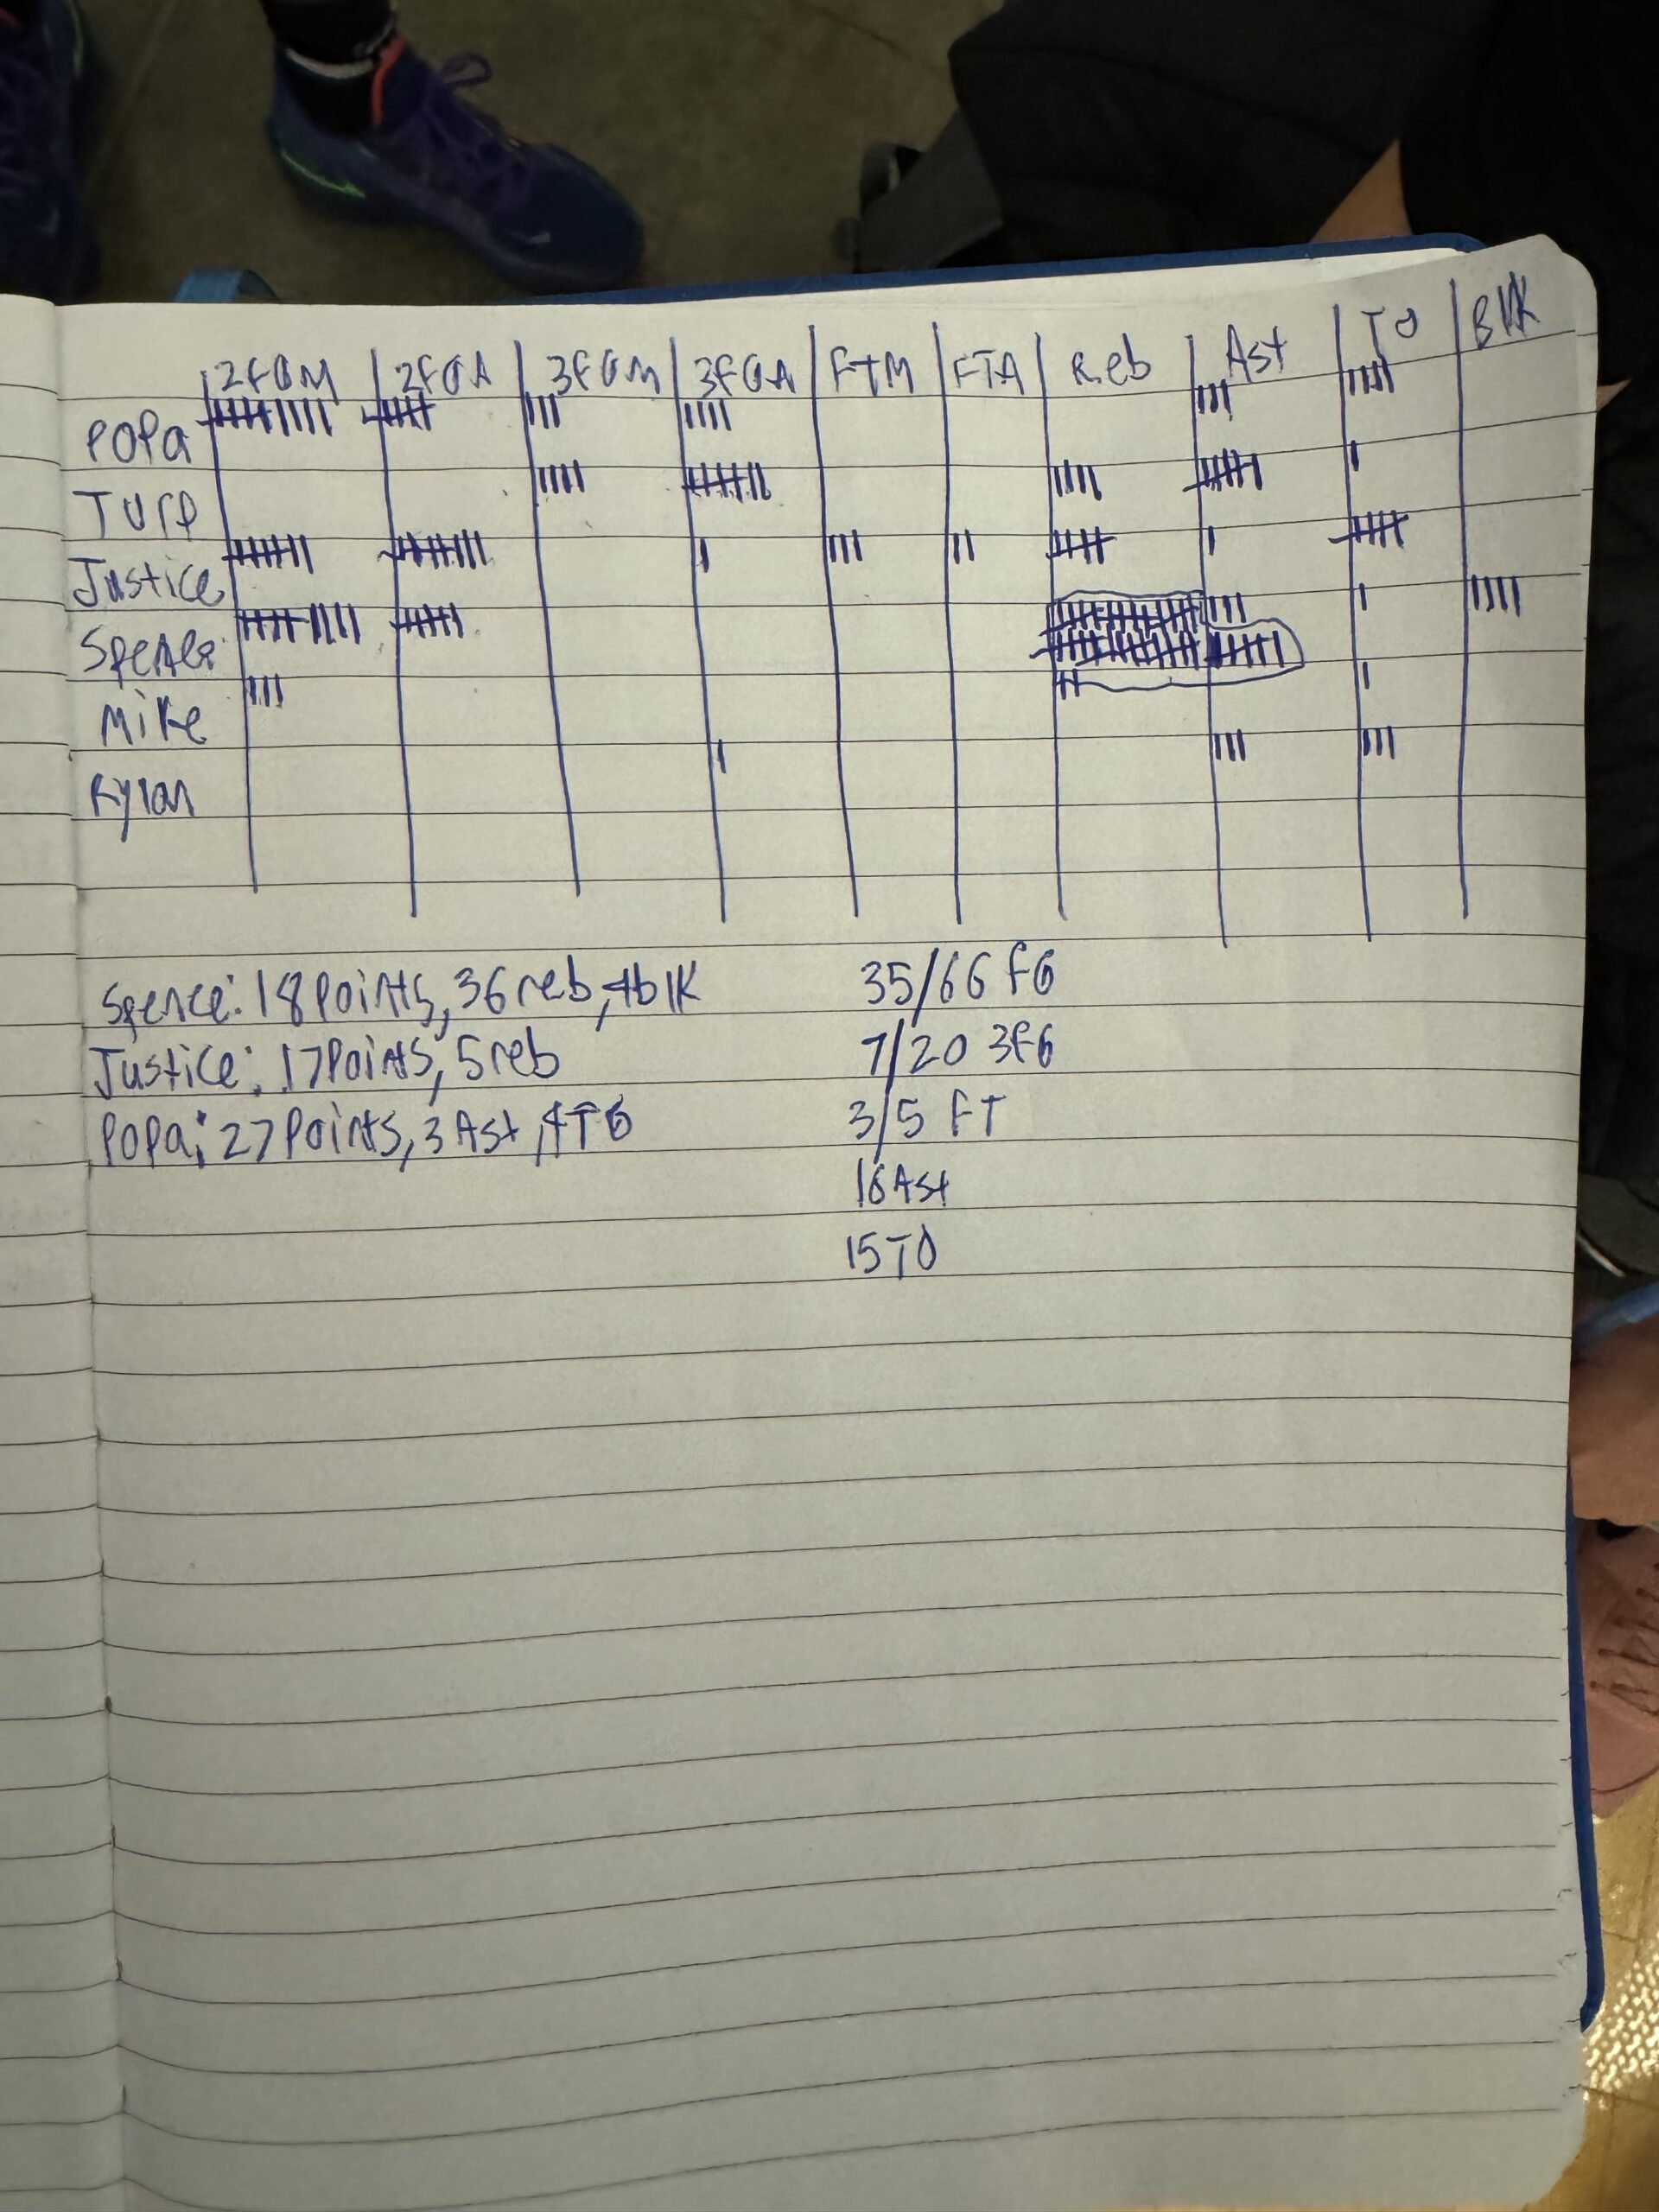 2FGM 2FGA 3FGM 3FGA FTM FTA Reb Ast TO Blk
Popa
Turp
Justice
Spence
Mike
Rylan
Spence: 18 points, 36 reb, 4 blk 35/66 FG
Justice: 17 Points, 5 reb 7/20 3FG
Popa: 27 Points, 3 Ast, 4 TO 3/5 FT
16 Ast
15 TO